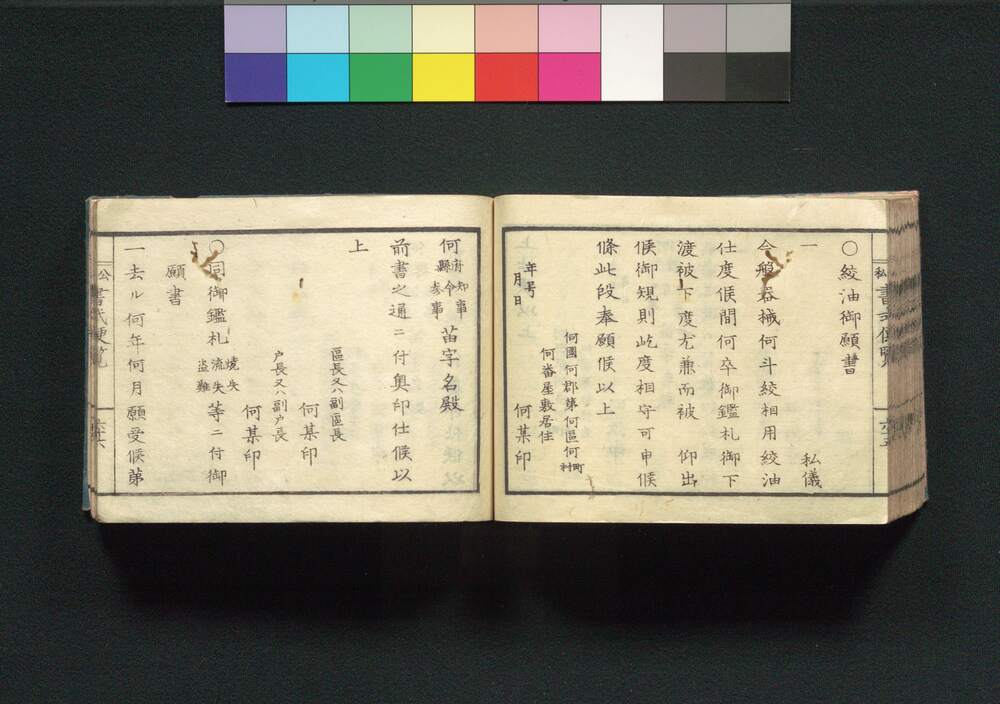 ○絞油御願書
一　私儀
今般器械何斗絞相用絞油
仕度候間何卒御鑑札御下
渡被下度尤兼而被　仰出
候御規則屹度相守可申候
條此段奉願候以上
年号
月日
何國何郡第何區何町村
何番屋敷居住
何某印
何府縣知事令参事苗字名殿
前書之通ニ付奥印仕候以
上
區長又ハ副區長
何某印
戸長又ハ副戸長
何某印
○同御鑑札焼失流失盗難等ニ付御
願書
一去ル何年何月願受候第
公
書式便覧
六十六
私
六十五